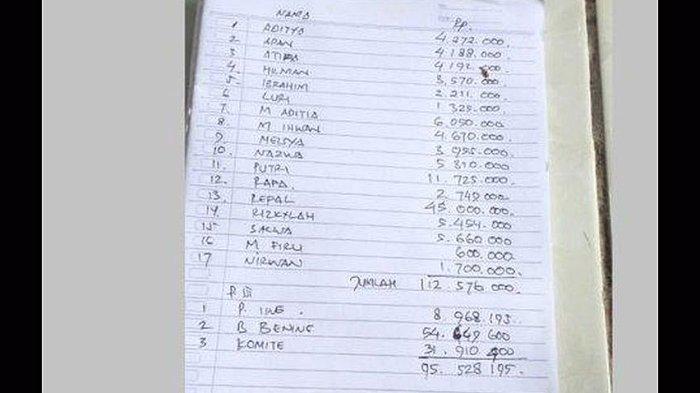 NAMA Rp.
1 ADITYA 4.272.000
2 APAN 4.188.000
3 4.192.500
4. HILMAN 3.570.000
5. IBRAHIM 2.211.000
6 LURI 1.325.000
7. M ADITIA 6.050.000
8 M IHWAN 4.670.000
9 MEISYA
10. NAZWA 5.310.000
11. PUTRI 11.725.000
12. RAPA. 2.749.000
13. REPAL 45.000.000
14 RIZKYLAH 5.454.000
15 SALWA 5.660.000
16 M FIRLI 600.000
17 NIRWAN 1.700.000.
JUMLAH 112 576 000.
P. III
1 P. IING. 8 968.195.
2 B BENING 54.649 600
3 KOMITE 31.910 400
95.528 195.